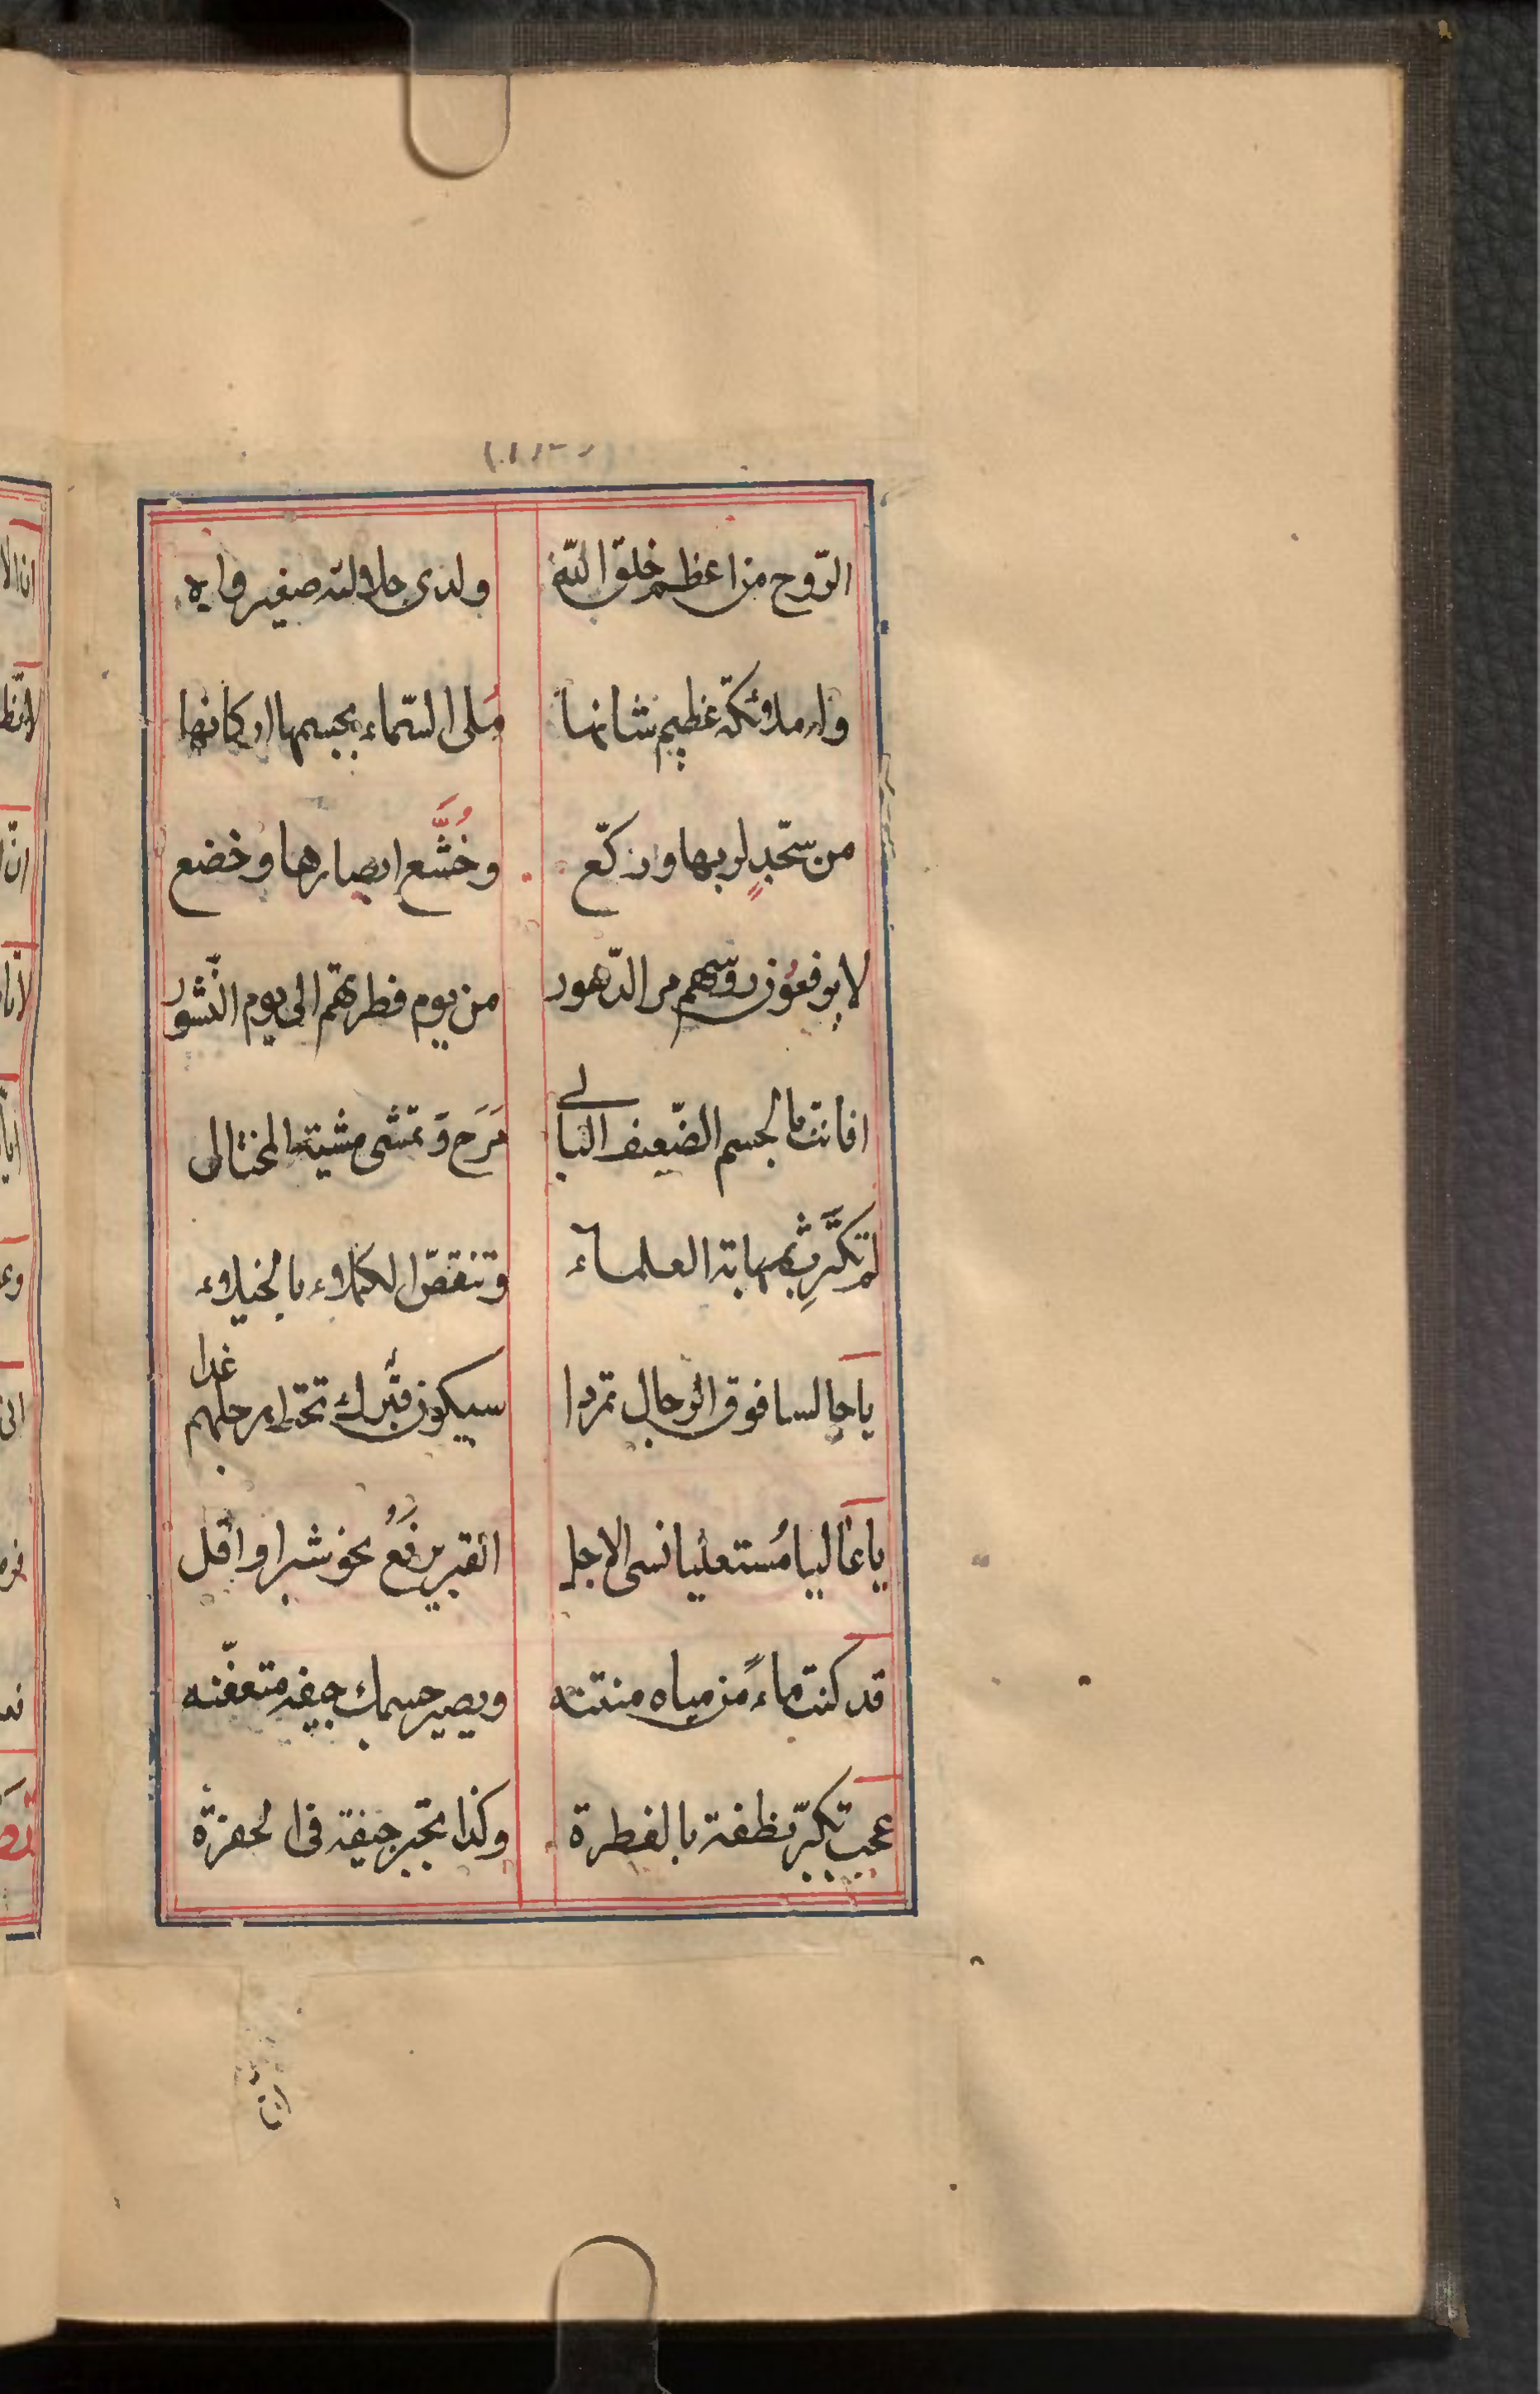 الرّوح من اعظم خلق اللّه ولدى جلالته صغير واه
وار ملائكة عظيم شانها ملى السّماء بجسمها اركانها
من سجّدٍ لربها وركّع وخُشَّع ابصارها وخضع
لا يرفعون روسهم مر الدّهور من يوم فطرتهم الى يوم النّشور
افانت بالجسم الضّعيف البالى مَرَح وتمشى مشية المختال
لم تكترث بمهابة العلماء وتنقصّ الكملاء بالخيلاء
يا جالسا فوق الرجال تمردا سيكون قبرك تحت ارجلهم غدا
يا عاليا مستعليا نسى الاجل القبر يرفع نحو شبر او اقل
قد كنت ماءً من مياه منتنه ويصير جسمك جيفه متعفّنه
عجب تكبّر نطفة بالفطرة وكذا تجبر جيفة فى الحفرة